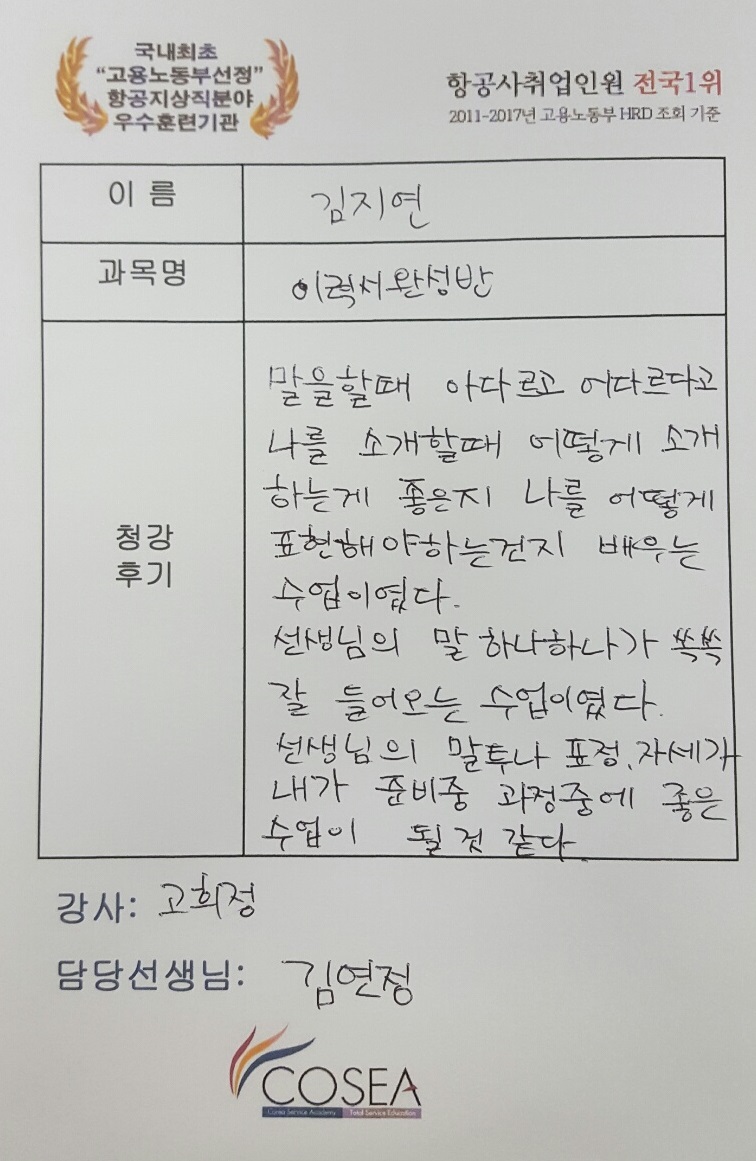 국내최초
"고용노동부선정"
항공지상직분야
우수훈련기관
항공사취업인원 전국1위
2011-2017년 고용노동부 HRD 조회 기준
이 름
김지연
과목명
이력서완성반
청강
후기
말을할때 아다르고 어다르다고
나를 소개할때 어떻게 소개
하는게 좋은지 나를 어떻게
표현해야하는건지 배우는
수업이였다.
선생님의 말 하나하나가 쏙쏙
잘 들어오는 수업이였다.
선생님의 말투나 표정, 자세가
내가 준비중 과정중에 좋은
수업이 될 것 같다.
강사: 고희정
담당선생님: 김연정
COSEA
Corea Service Academy Total Service Education